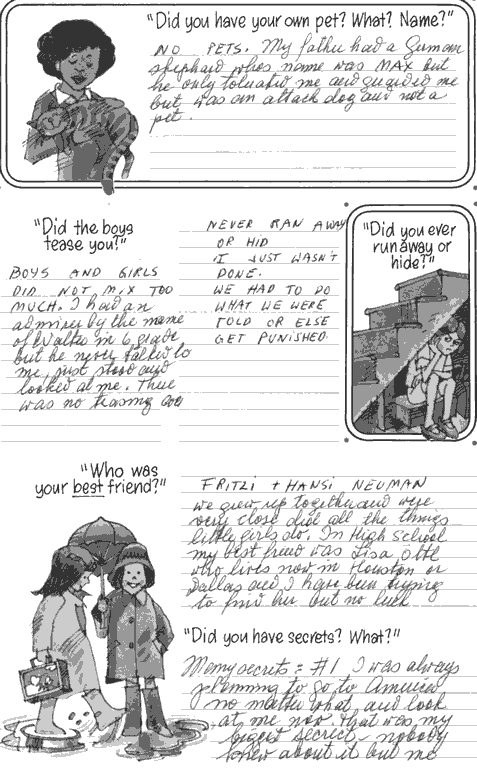 "Did you have your own pet? What? Name?"
NO PETS. My father had a German
shephard whos name was MAX but
he only toluated me and guarded me
but was an attack dog and not a
pet.
"Did the boys
tease you?"
BOYS AND GIRLS
DID NOT MIX TOO
MUCH. I had an
admirer by the name
of Walter in 6 grade
but he never talked to
me, just stood and
looked at me. There
was no teasing
NEVER RAN AWAY
OR HID
IT JUST WASN'T
DONE.
WE HAD TO DO
WHAT WE WERE
TOLD OR ELSE
GET PUNISHED.
"Did you ever
run away or
hide?"
"Who was
your best friend?"
FRITZI + HANSI NEUMAN
we grew up together and were
very close did all the things
little girls do. In High School
my best friend was Lisa
who lives now in Houston or
Dallas and I have been trying
to find her but no luck
"Did you have secrets? What?"
Many secrets = #1 I was always
planning to go to America
no matter what and look
at me now that was my
biggest secret nobody
knew about it but me